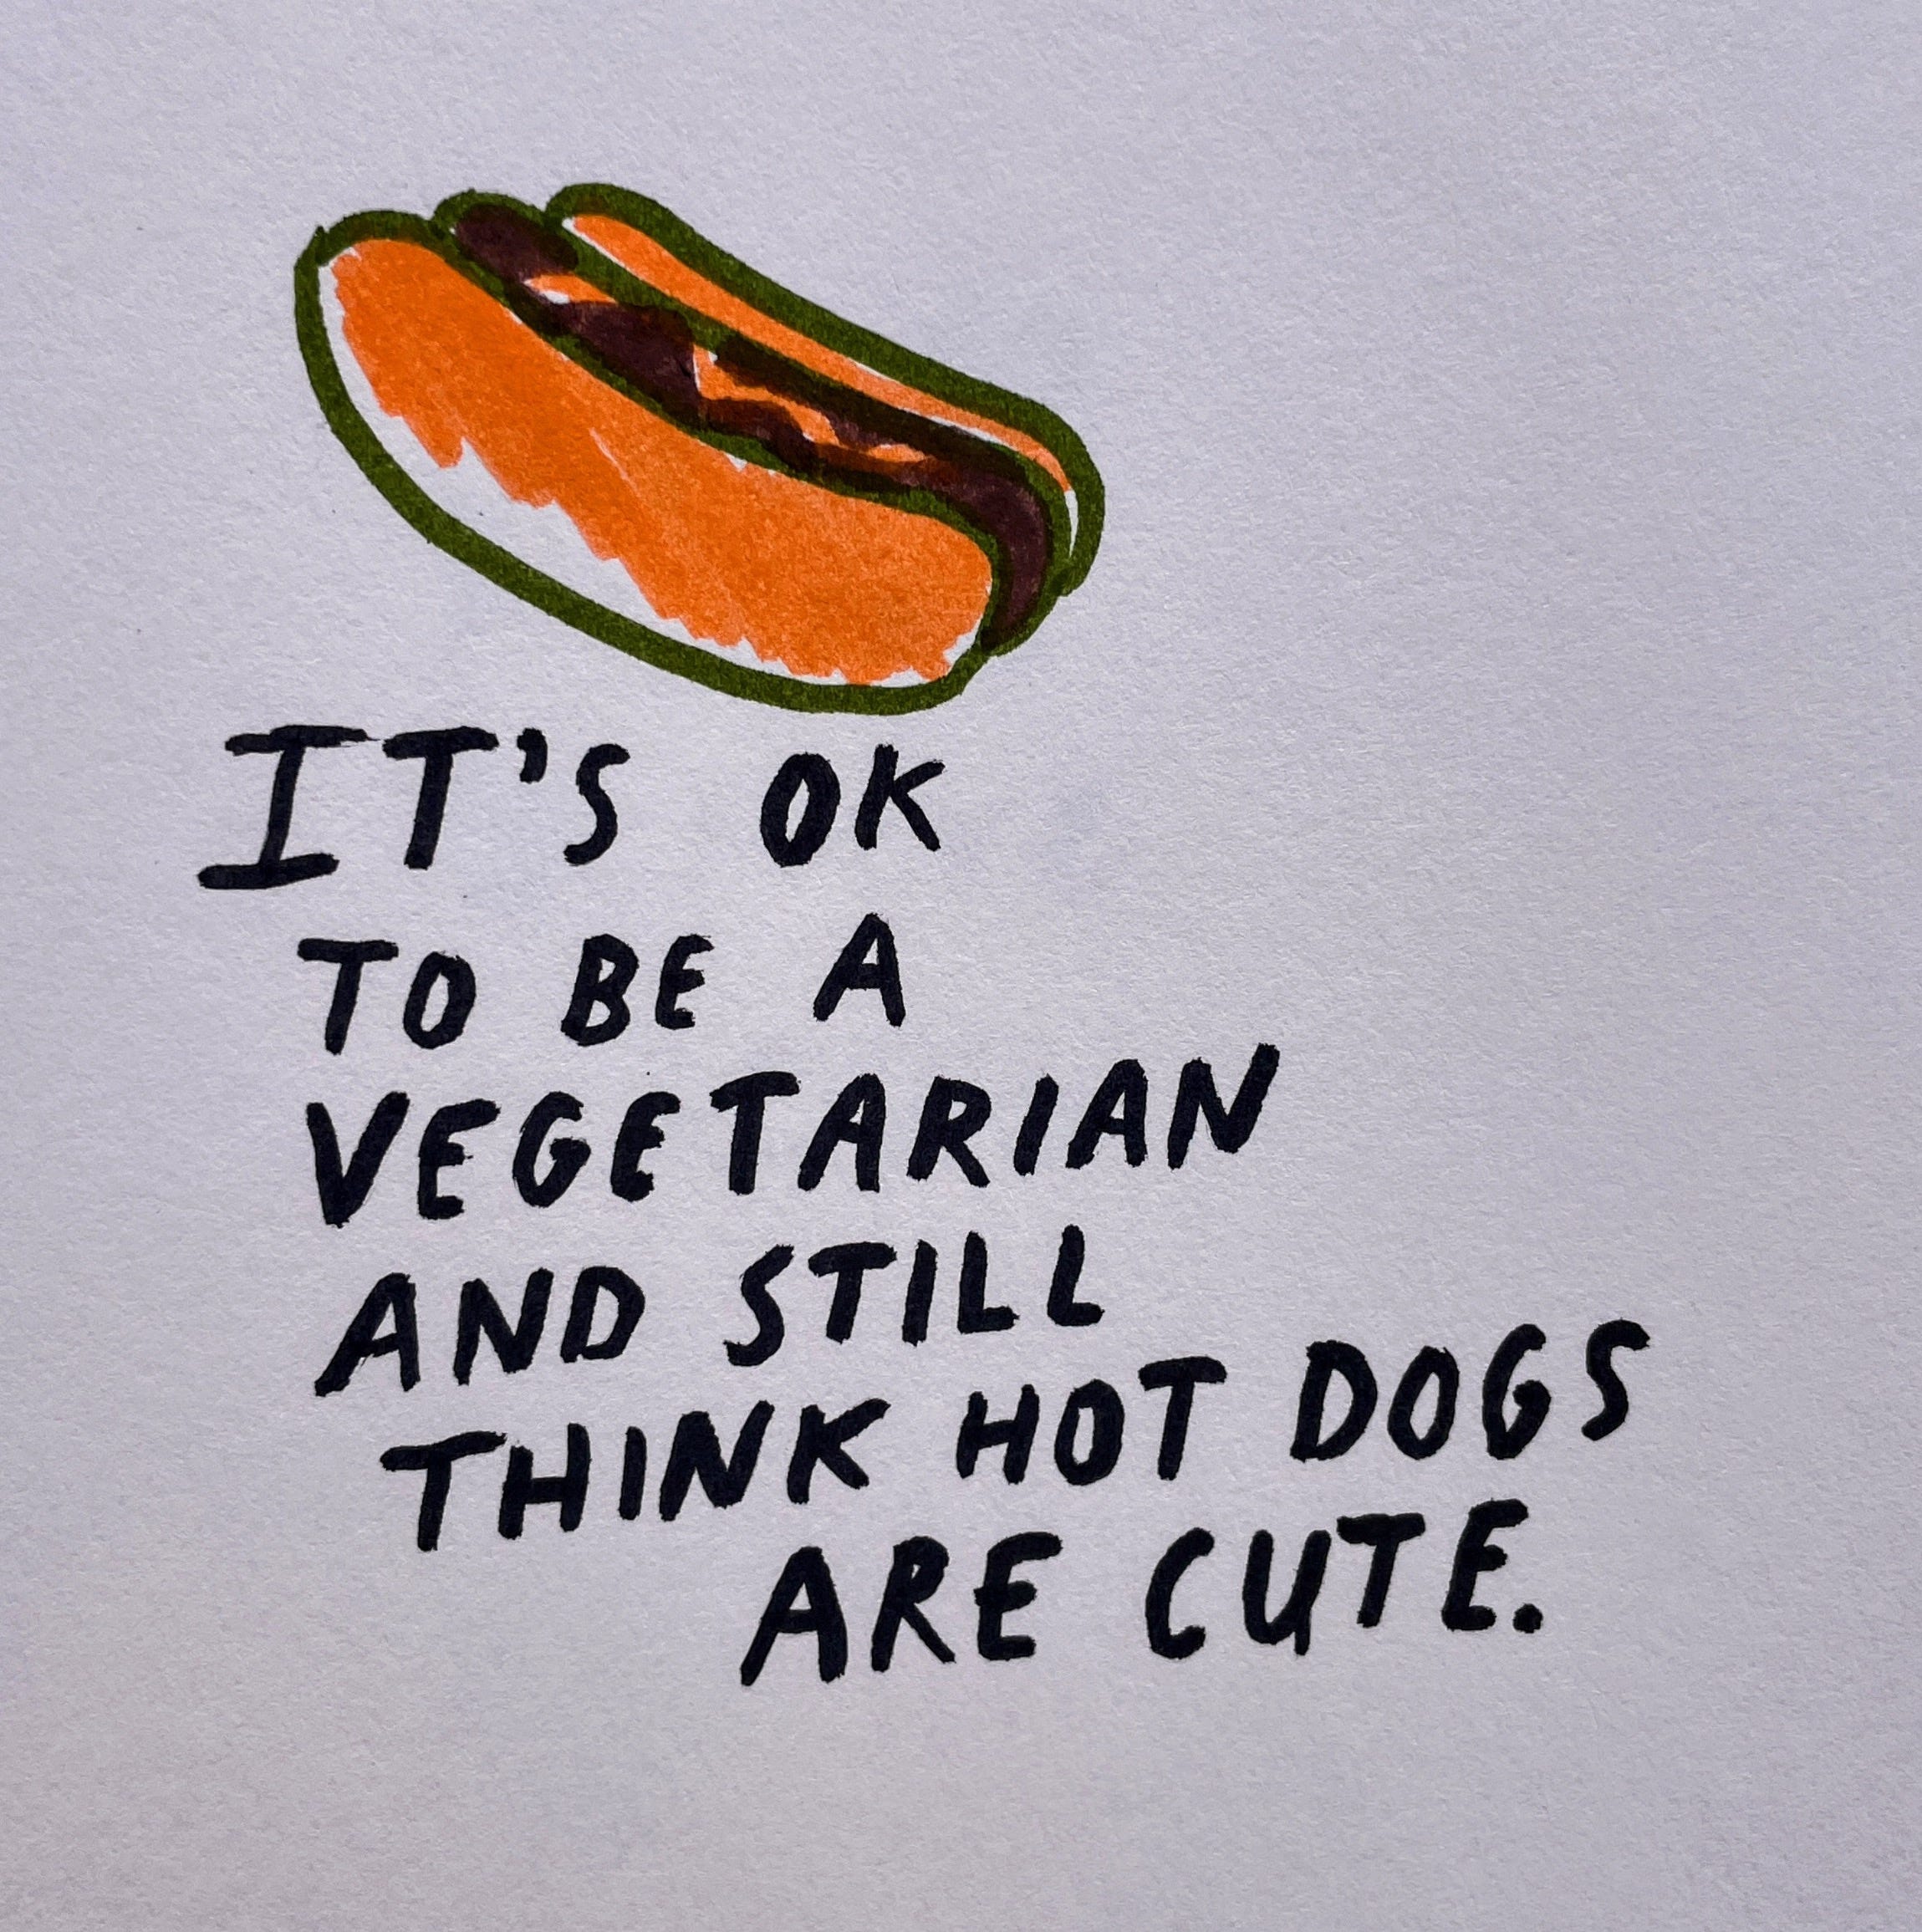 IT'S OK
TO BE A
VEGETARIAN
AND STILL
THINK HOT DOGS
ARE CUTE.